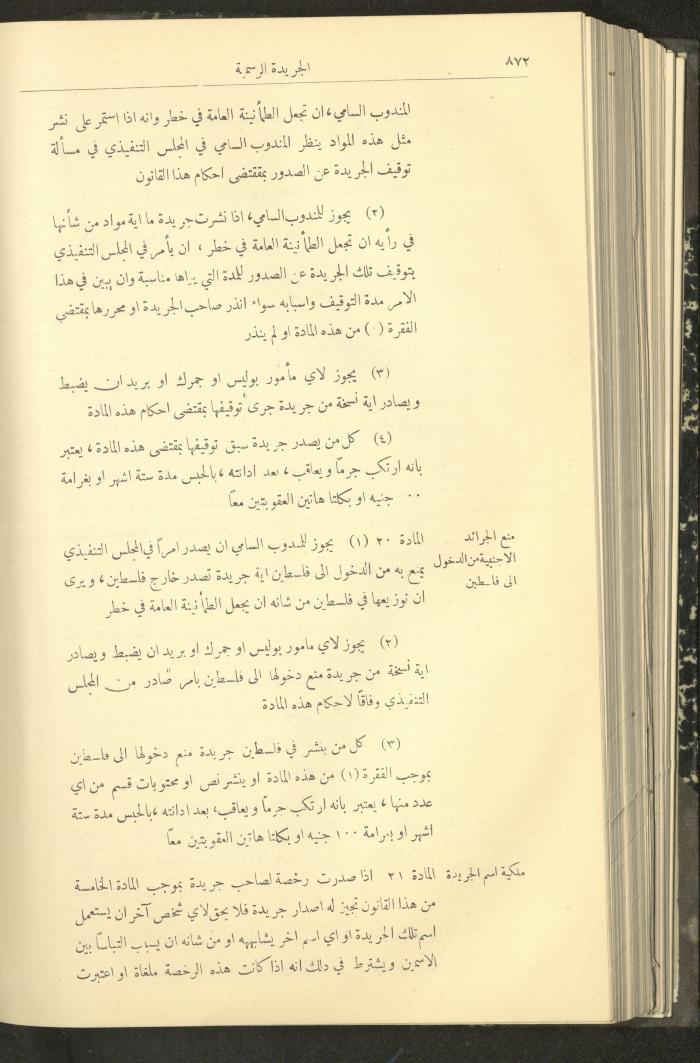 ٨٧٢
الجريدة الرسمية
المندوب السامي، ان تجعل الطأنينة العامة في خطر وانه اذا استمر على نشر
مثل هذه المواد ينظر المندوب السامي في المجلس التنفيذي في مسألة
توقيف الجريدة عن الصدور بمقتضى احكام هذا القانون
(٢) يجوز للمندوب السامي، اذا نشرت جريدة ما اية مواد من شأنها
في رأيه ان تجعل الطأنينة العامة في خطر ، ان يأمر في المجلس التنفيذي
بتوقيف تلك الجريدة عن الصدور للمدة التي يراها مناسبة وان يبين في هذا
الامر مدة التوقيف واسبابه سواء انذر صاحب الجريدة او محررها بمقتضى
الفقرة من هذه المادة او لم ينذر
(٣) يجوز لاي مأمور بوليس او جمرك او بريد ان يضبط
ويصادر اية نسخة من جريدة جرى توقيفها بمقتضى احكام هذه المادة
(٤) كل من يصدر جريدة سبق توقيفها بمقتضى هذه المادة، يعتبر
بانه ارتكب جرمًا ويعاقب، بعد ادانته، بالحبس مدة ستة اشهر او بغرامة
٠٠ جنيه او بكلتا هاتين العقوبتين معًا
منع الجرائد
الاجنبية من الدخول
الى فلسطين
المادة ٢٠ (١) يجوز للمندوب السامي ان يصدر امراً في المجلس التنفيذي
يمنع به من الدخول الى فلسطين اية جريدة تصدر خارج فلسطين، ويرى
ان توزيعها في فلسطين من شانه ان يجعل الطأنينة العامة في خطر
(٢) يجوز لاي مامور بوليس او جمرك او بريد ان يضبط ويصادر
اية نسخة من جريدة منع دخولها الى فلسطين بامر صادر من المجلس
التنفيذي وفاقًا لاحكام هذه المادة
(٣) كل من ينشر في فلسطين جريدة منع دخولها الى فلسطين
بموجب الفقرة (١) من هذه المادة او ينشر نص او محتويات قسم من اي
عدد منها، يعتبر بانه ارتكب جرمًا ويعاقب، بعد ادانته، بالحبس مدة ستة
اشهر او بغرامة ١٠٠ جنيه او بكلتا هاتين العقوبتين معًا
ملكية اسم الجريدة
المادة ٢١ اذا صدرت رخصة لصاحب جريدة بموجب المادة الخامسة
من هذا القانون تجيز له اصدار جريدة فلا يحق لاي شخص آخر ان يستعمل
اسم تلك الجريدة او اي اسم اخر يشابهه او من شانه ان يسبب التباسًا بين
الاسمين ويشترط في دلك انه اذا كانت هذه الرخصة ملغاة او اعتبرت